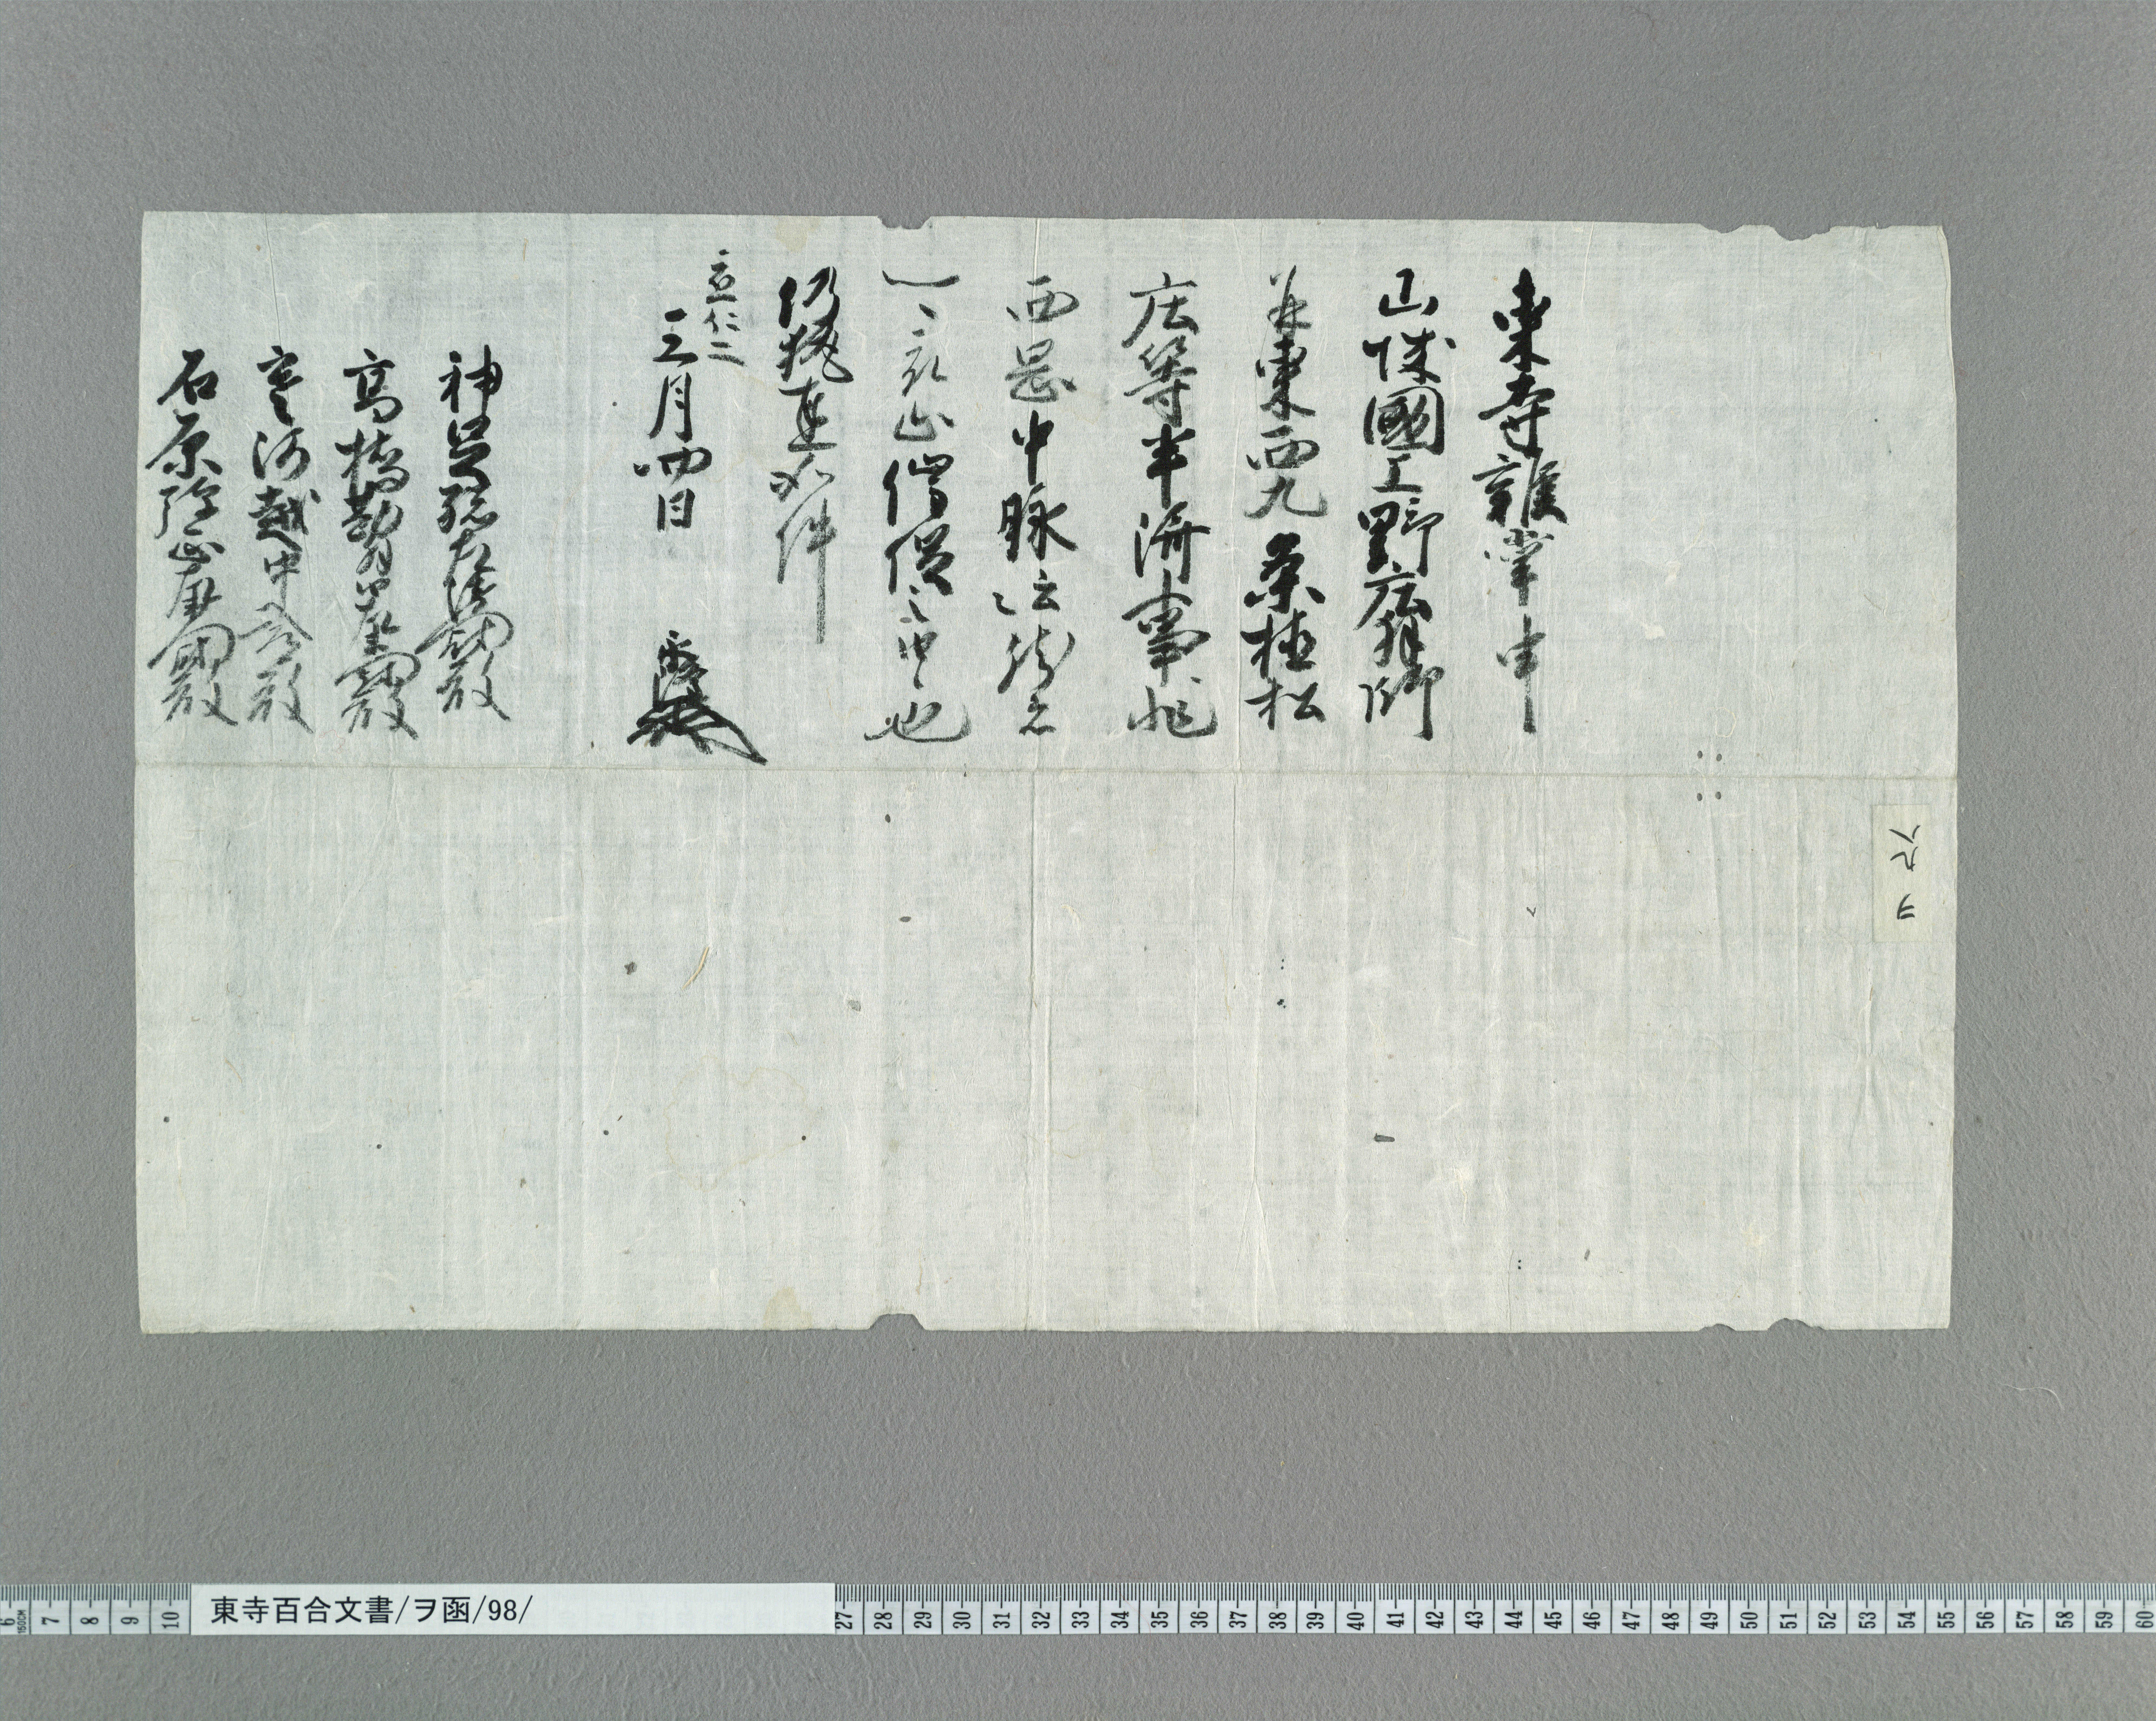 東寺雑掌申
山城國上野庄拝師
并東西九条植松
庄等半済事
西岡中脉
也
仍執達如件
応仁二
三月四日
神足孫左衛門尉殿
高橋勘解由左衛門尉殿
寒河越中入道殿
石原弾正左衛門尉殿
ヲ 九八
東寺百合文書/ヲ函/98/
6 7 8 9 10 27 28 29 30 31 32 33 34 35 36 37 38 39 40 41 42 43 44 45 46 47 48 49 50 51 52 53 54 55 56 57 58 59 60